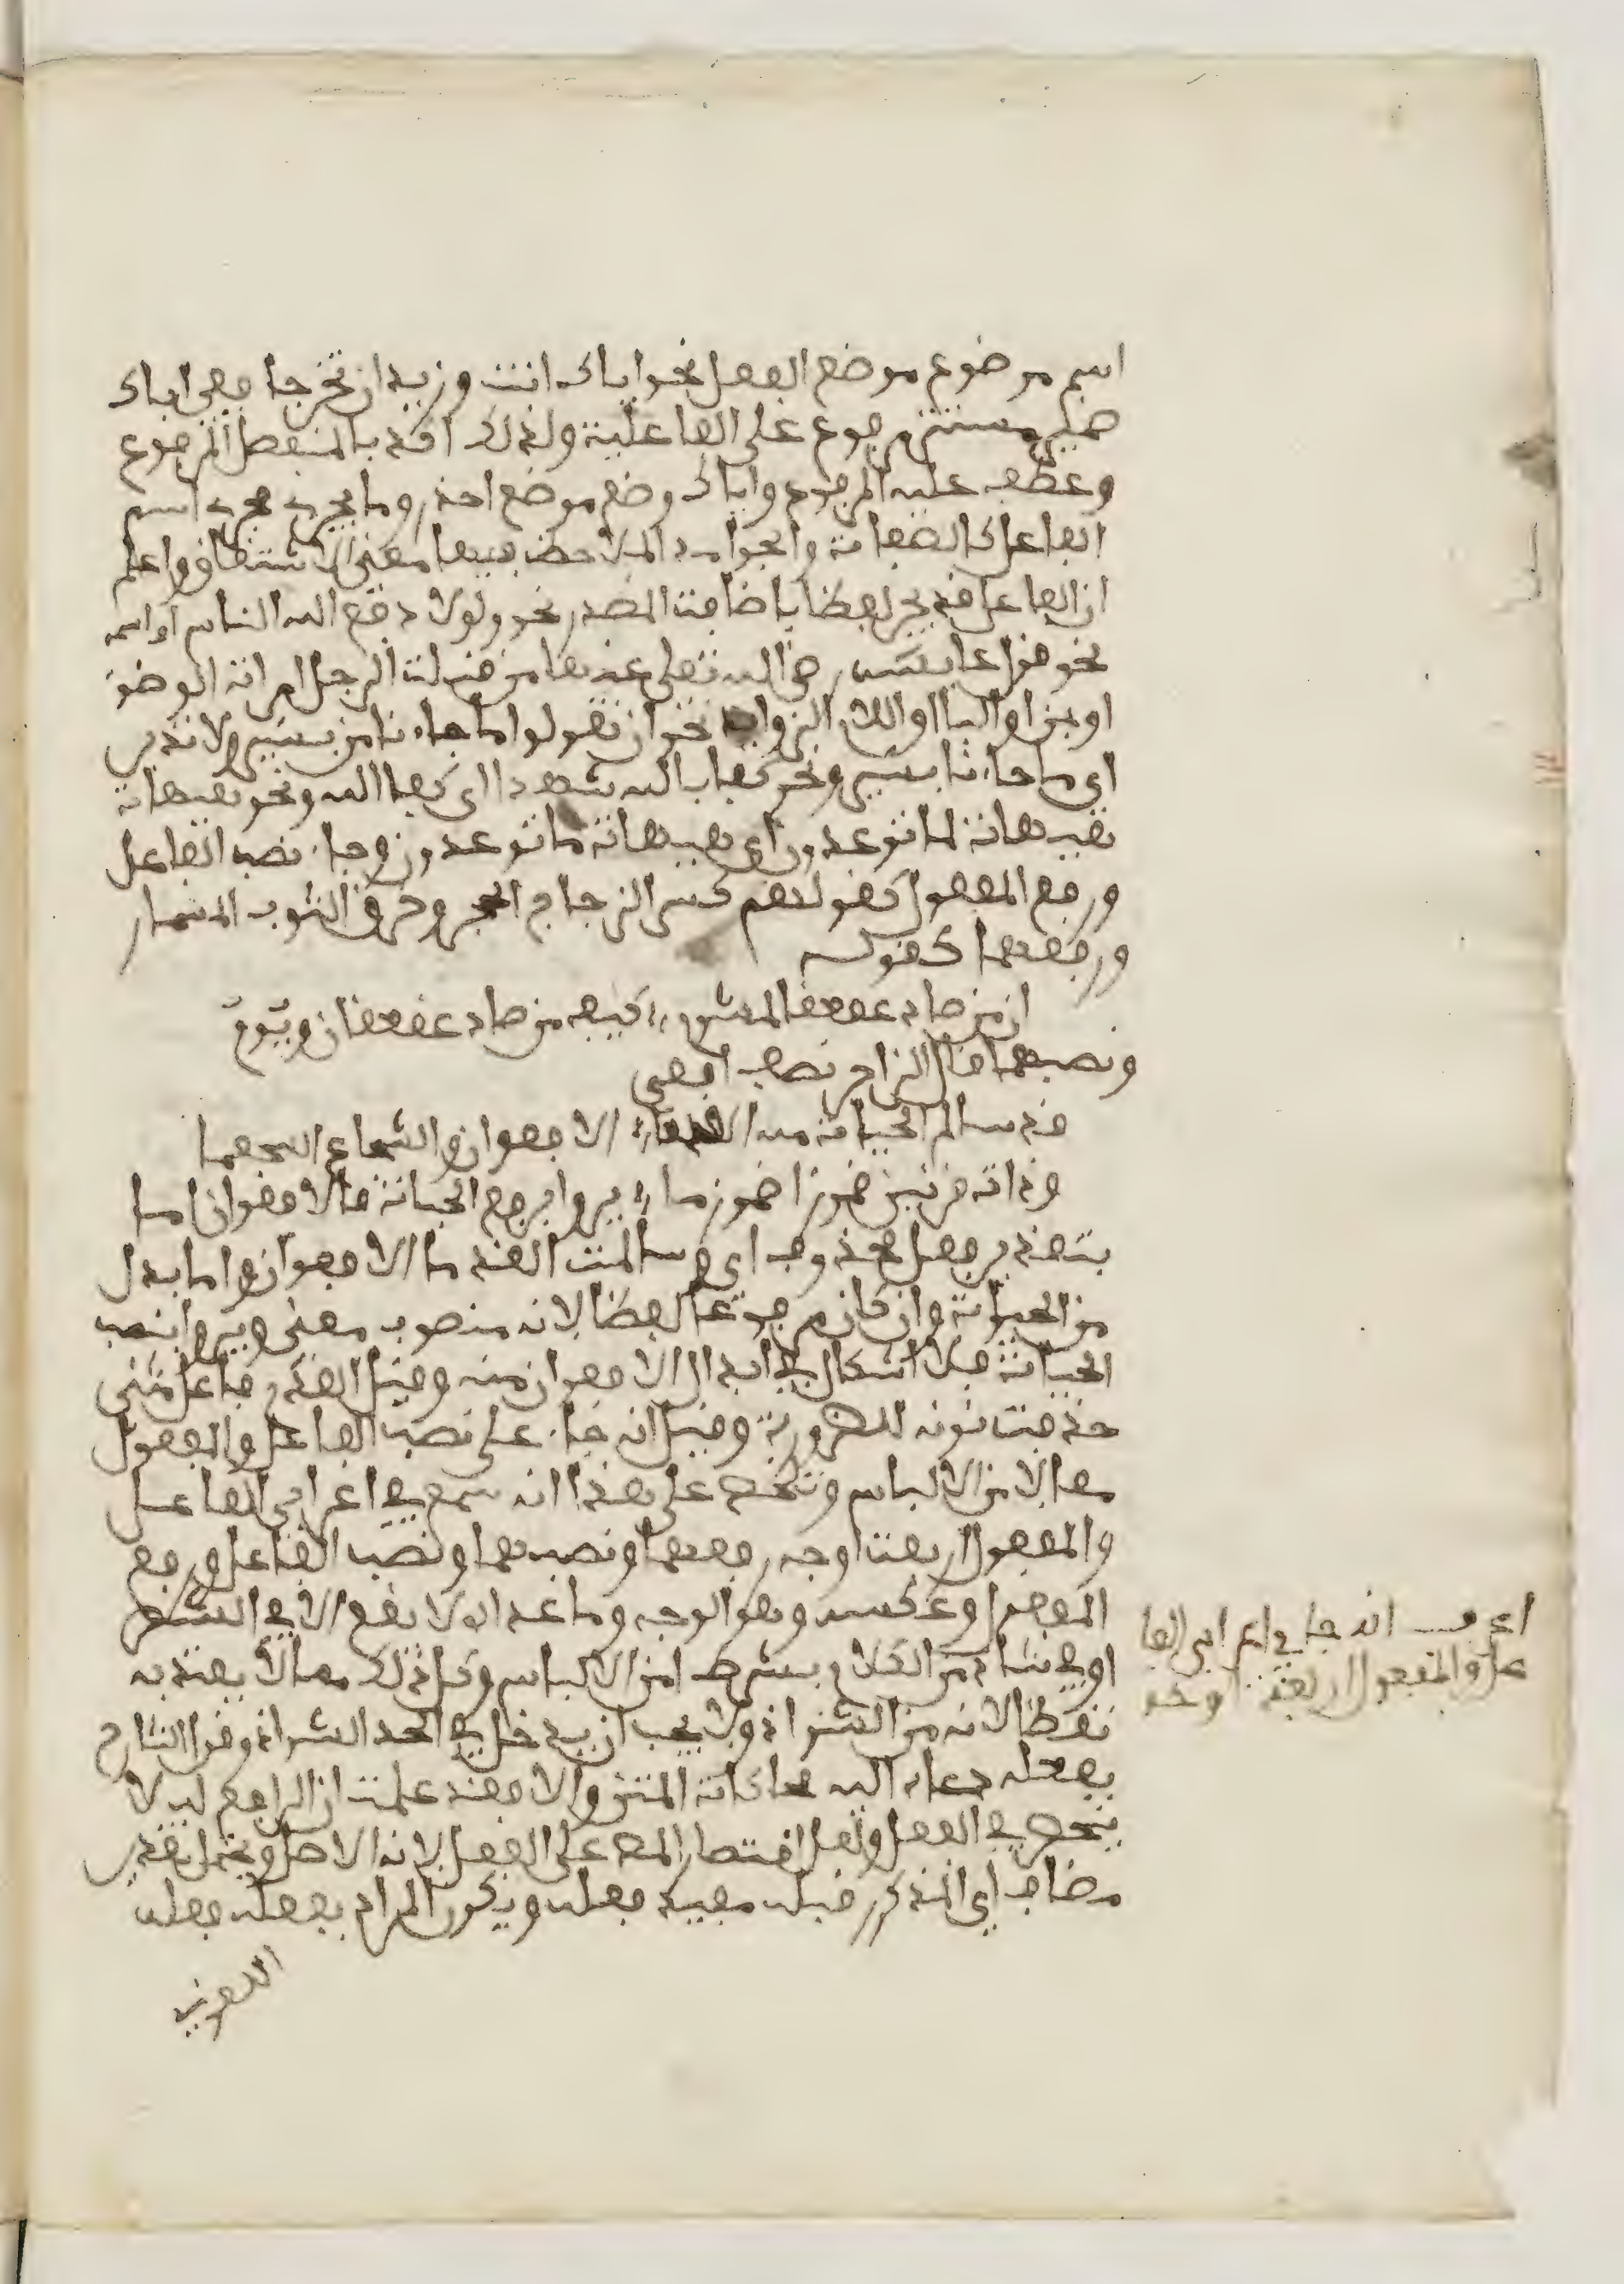 اسم موضوع موضع الفعل نحو اياك انت وزيد ان تخرجا ففي اياك
ضمير مستتر مرفوع على الفاعلية ولذلك اكد بالمنفصل المرفوع
وعطف عليه المرفوع واياك وضع موضع احذر وما يجري مجرى اسم
الفاعل كالصفات والجوامد الملاحظ فيها معنى الاشتقاق واعلم
ان الفاعل قد يجر لفظا باضافة المصدر نحو ولولا دفع الله الناس او اسمه
نحو قول عايشة رضي الله تعلى عنها من قبلة الرجل امراته الوضوء
او بمن او الباء او اللام الزوايد نحو ان تقولوا ما جاءنا من بشير ولا نذير
اي ما جاءنا بشير ونحو كفى بالله شهيدا اي كفى الله ونحو هيهات
هيهات لما توعدون اي هيهات ما توعدون وجاء نصب الفاعل
ورفع المفعول كقولهم كسر الزجاج الحجر وخرق الثوب المسمار
ورفعهما كقوله
ان من صاد عقعقا لمشوم ؛ كيف من صاد عقعقان وبوم
ونصبهما قال الراجز يصف افعى
قد سالم الحيات منه القدما ؛ الافعوان والشجاع الشجعما
وذات قرنين ضموزا ضرزما ؛ يروا برفع الحيات فالافعوان اما
بتقدير فعل محذوف اي وسالمت القدما الافعوان واما بدل
من الحيات وان كان مرفوعا لفظا لانه منصوب معنى ويروا بنصب
الحيات فلا اشكال في ابدال الافعوان منه وقيل القدما فاعل مثنى
حذفت نونه للضرورة وقيل انه جاء على نصب الفاعل والمفعول
معا لا من الالباس وتحصل على هذا انه سمع في اعراب الفاعل
والمفعول اربعة اوجه رفعهما ونصبهما ونصب الفاعل ورفع
المفعول وعكسه وهو الوجه وما عداه لا يقع الا في الشعر
او في شاذ من الكلام بشرط امن الالباس وكل ذلك مما لا يعتد به
نقضا لانه من الشواذ ولا يجب ان يدخل في الحد الشواذ وقول الشارح
بفعله دعاه اليه محاكاة المتن والا فقد علمت ان الرافع له لا
ينحصر في الفعل ولعل اقتصار المص على الفعل لانه الاصل ويحتمل تقدير
مضاف اي المذكور قبله مفيد فعله ويكون المراد بفعله فعله
اللغوي
اعرف انه جا في اعراب الفا
عل والمفعول اربعة اوجه